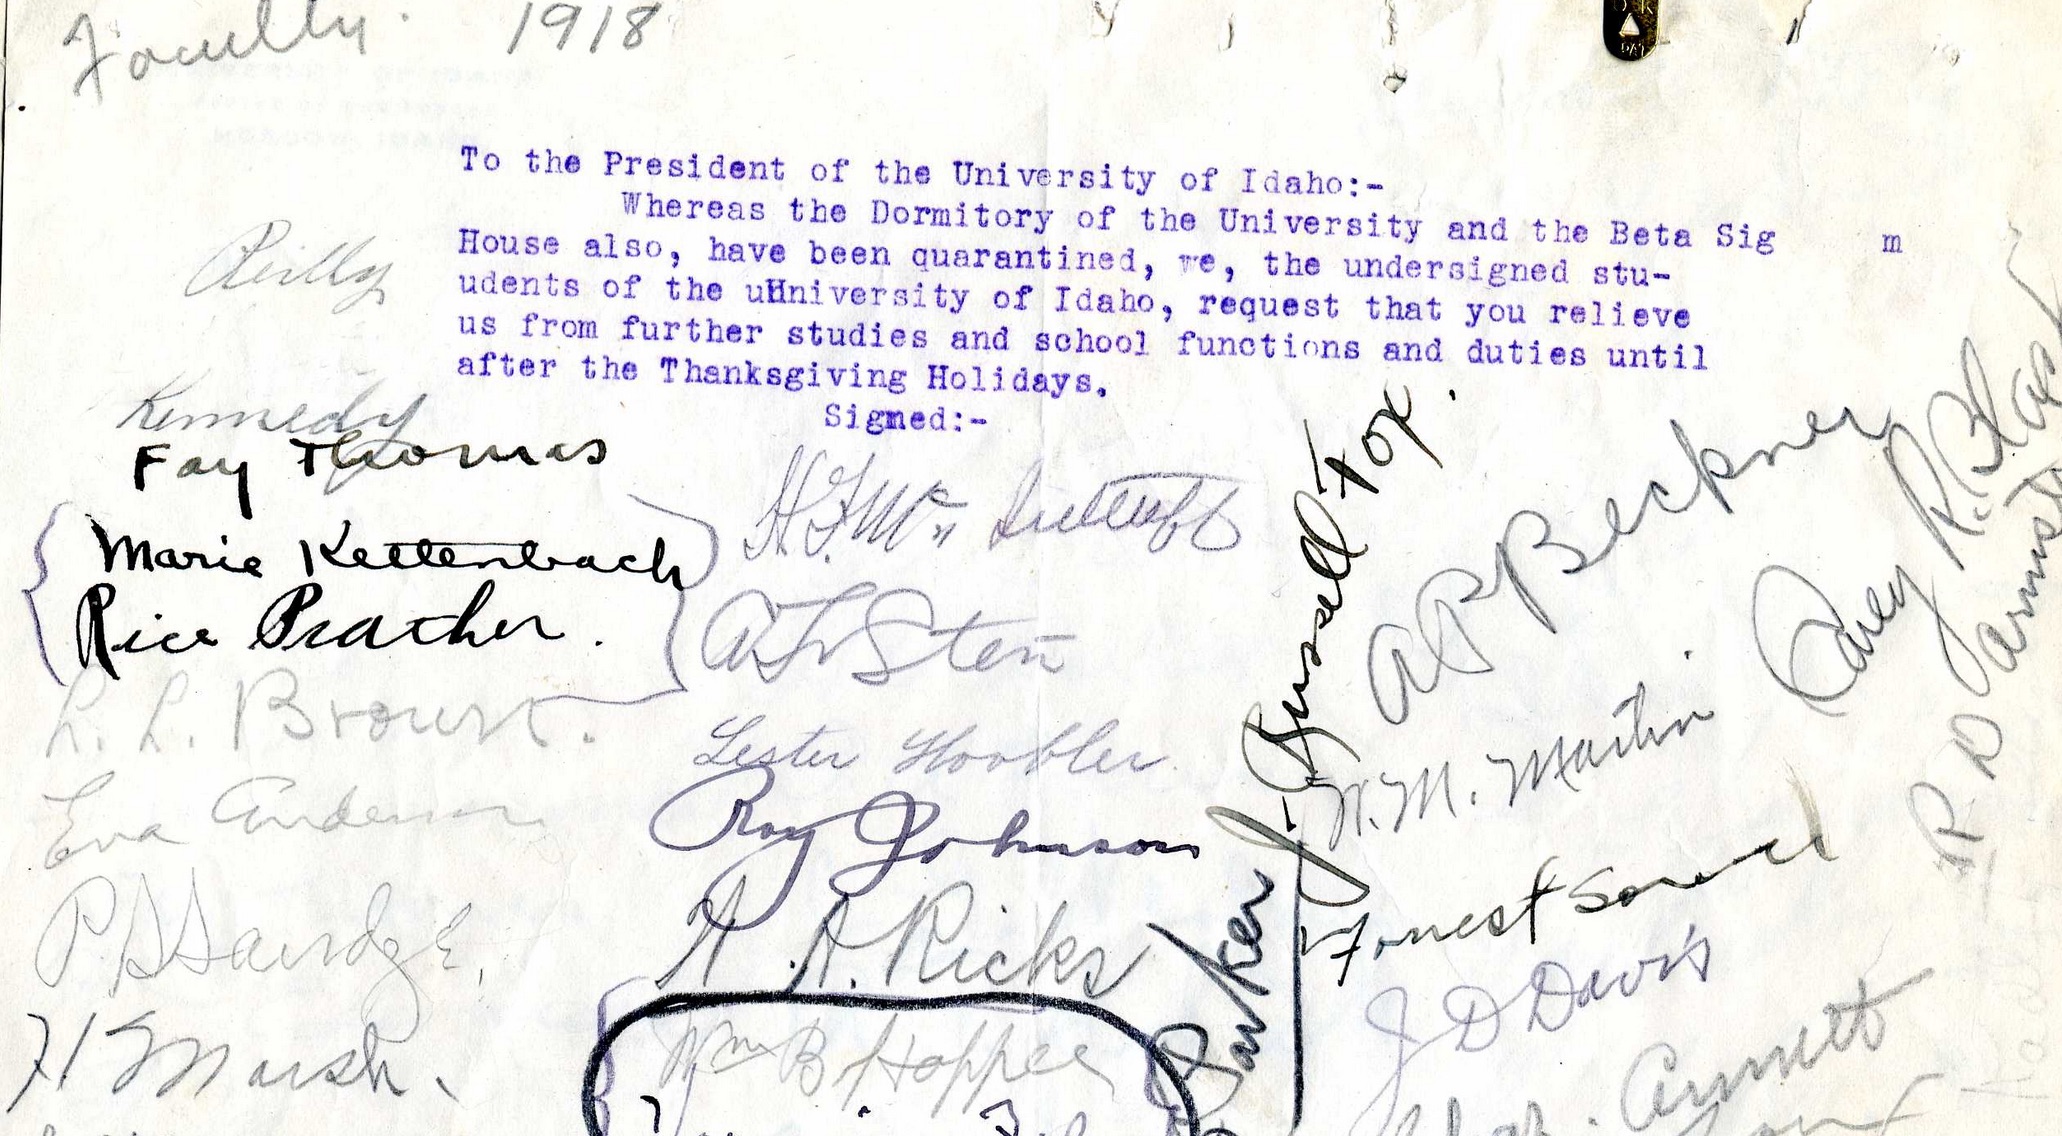 Faculty. 1918
To the President of the University of Idaho:-
Whereas the Dormitory of the University and the Beta Sig m
House also, have been quarantined, we, the undersigned stu-
udents of the uHniversity of Idaho, request that you relieve
us from further studies and school functions and duties until
after the Thanksgiving Holidays.
Signed:-
Reilly
Kennedy
Fay Thomas
Marie Kettenbach
Rice Prather.
L. L. Brown.
Eva Anderson
H Marsh.
Stein
Lester Hoobler.
Roy Johnson
A. Ricks
Wm B Hoppe
Parker
J. Russell Fox.
A P Beckner
M. Martin
Forrest
J D Davis
Arnett
Carey R.
R D